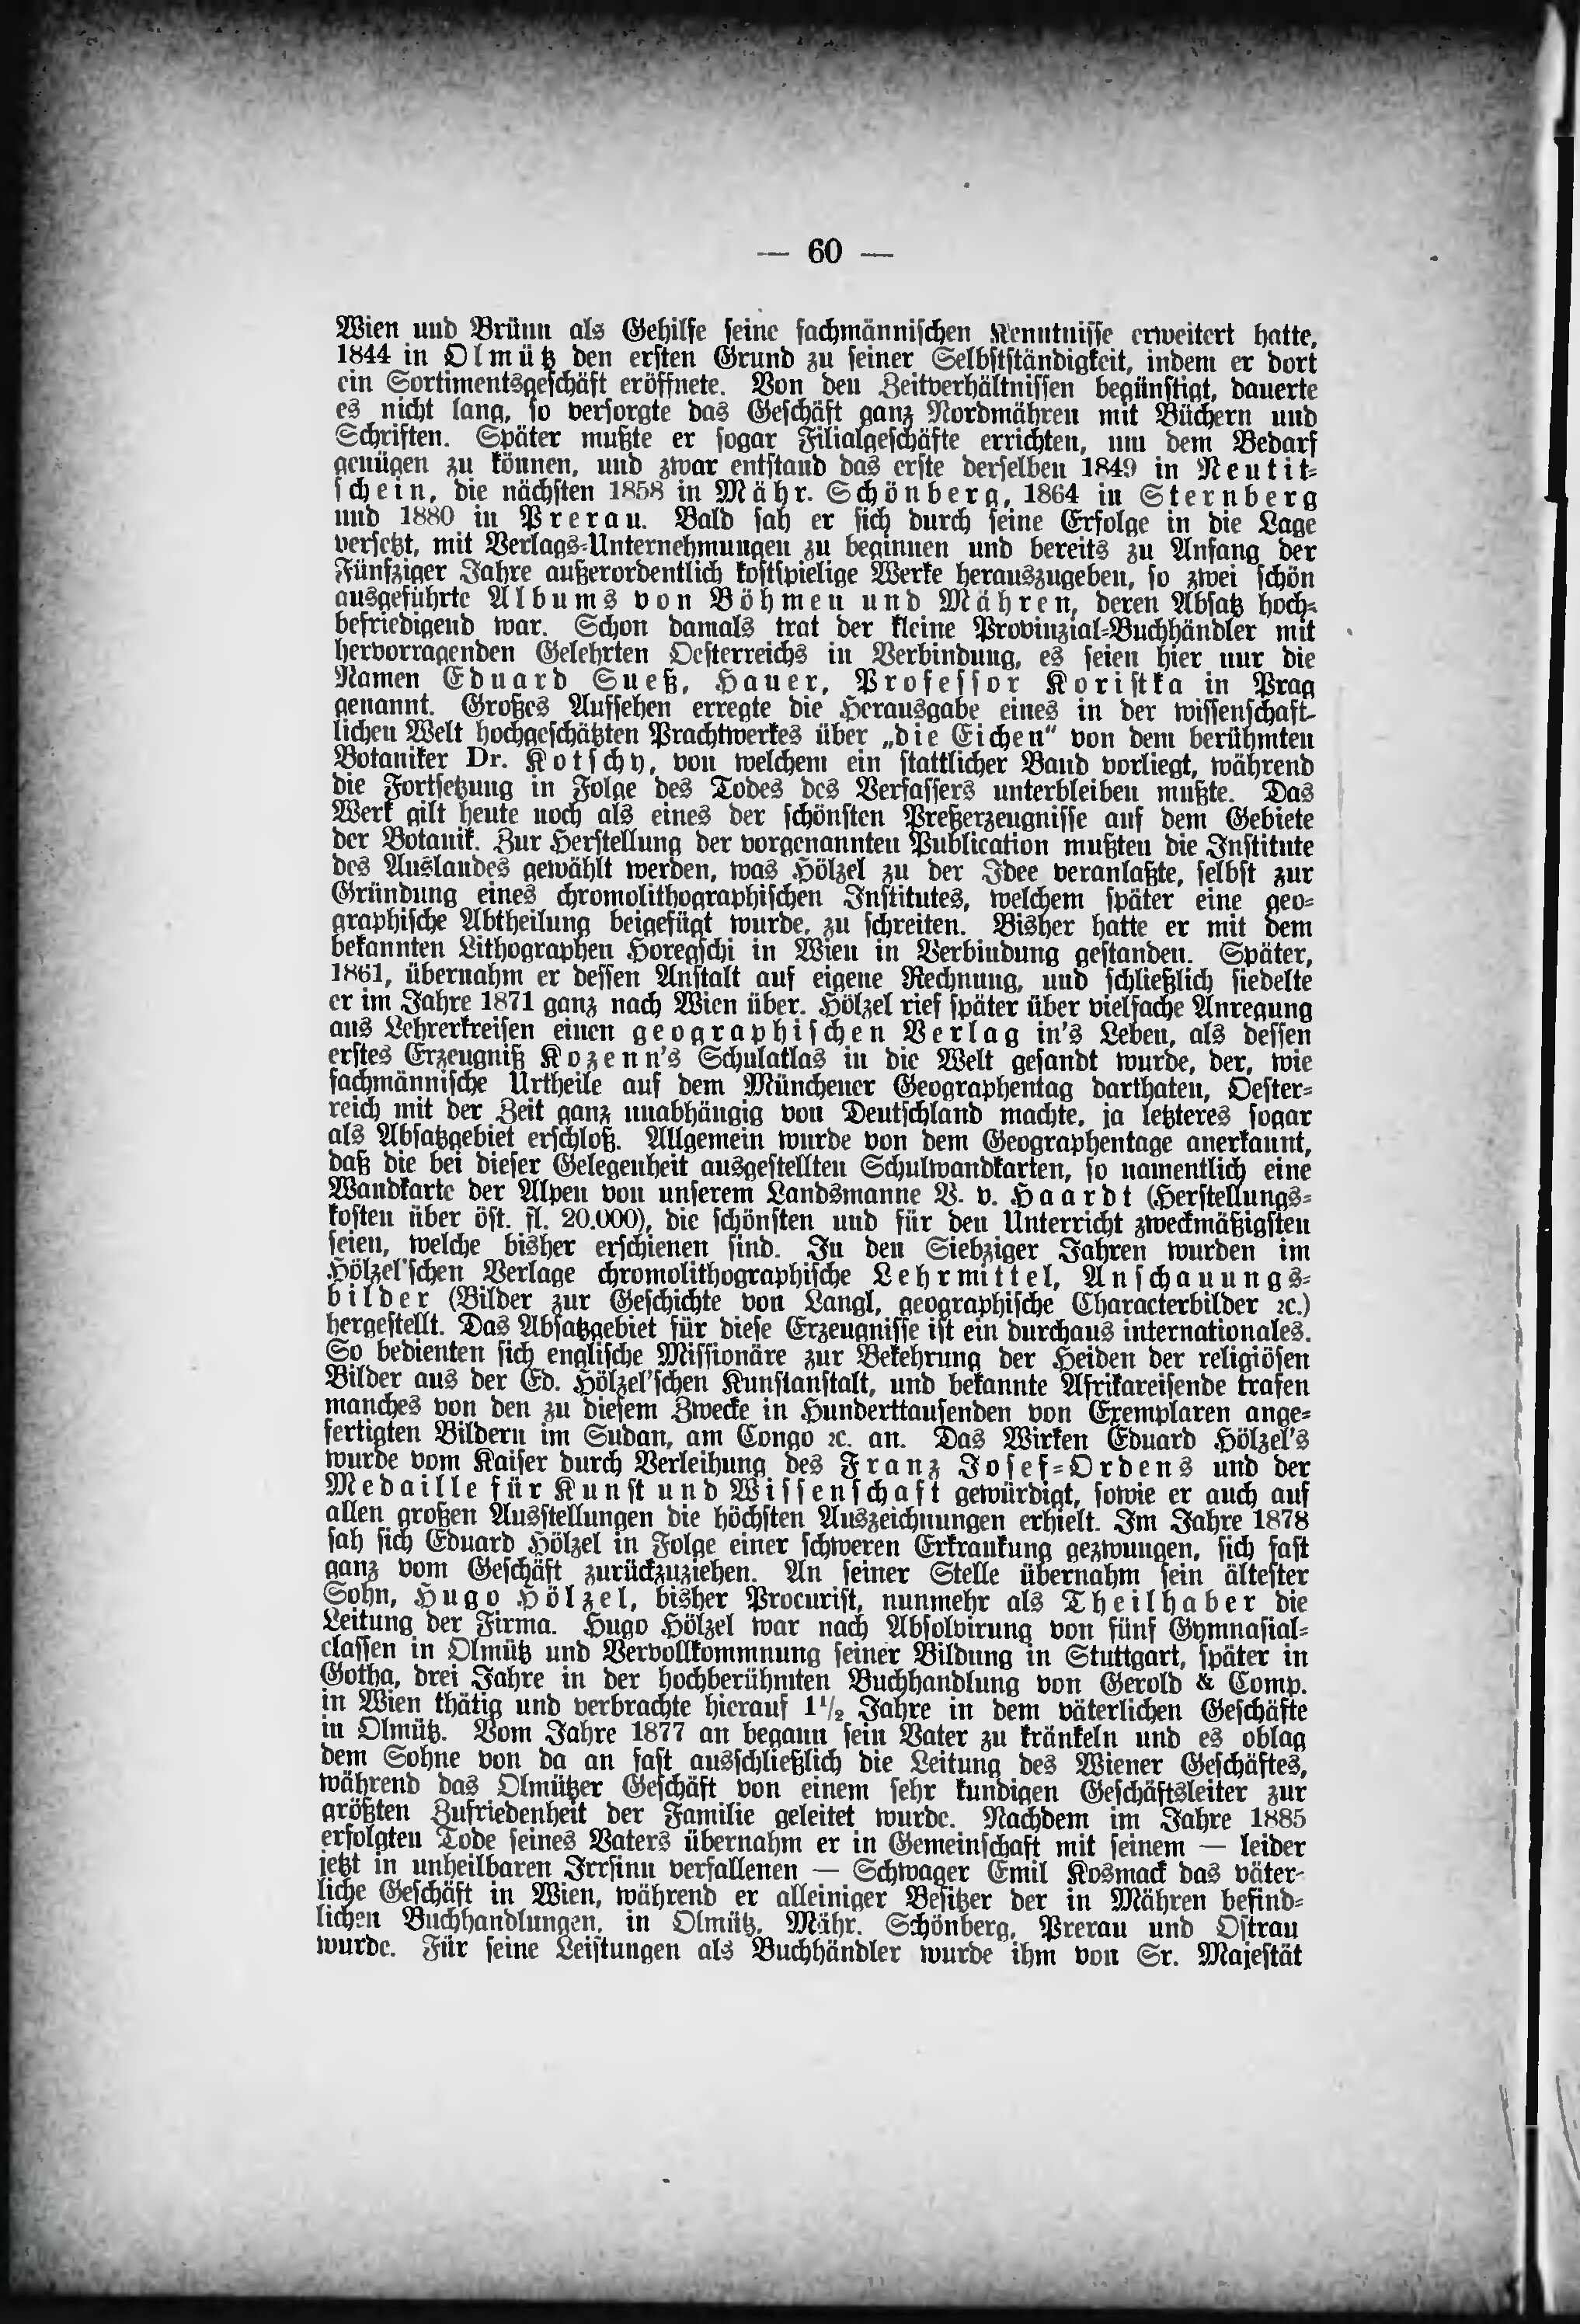 — 60 —
Wien und Brünn als Gehilfe seine fachmännischen Kenntnisse erweitert hatte,
1844 in Olmütz den ersten Grund zu seiner Selbstständigkeit, indem er dort
ein Sortimentsgeschäft eröffnete. Von den Zeitverhältnissen begünstigt, dauerte
es nicht lang, so versorgte das Geschäft ganz Nordmähren mit Büchern und
Schriften. Später mußte er sogar Filialgeschäfte errichten, um dem Bedarf
genügen zu können, und zwar entstand das erste derselben 1849 in Neutit-
schein, die nächsten 1858 in Mähr. Schönberg, 1864 in Sternberg
und 1880 in Prerau. Bald sah er sich durch seine Erfolge in die Lage
versetzt, mit Verlags-Unternehmungen zu beginnen und bereits zu Anfang der
Fünfziger Jahre außerordentlich kostspielige Werke herauszugeben, so zwei schön
ausgeführte Albums von Böhmen und Mähren, deren Absatz hoch-
befriedigend war. Schon damals trat der kleine Provinzial-Buchhändler mit
hervorragenden Gelehrten Oesterreichs in Verbindung, es seien hier nur die
Namen Eduard Sueß, Hauer, Professor Koristka in Prag
genannt. Großes Aufsehen erregte die Herausgabe eines in der wissenschaft-
lichen Welt hochgeschätzten Prachtwerkes über „die Eichen“ von dem berühmten
Botaniker Dr. Kotschy, von welchem ein stattlicher Band vorliegt, während
die Fortsetzung in Folge des Todes des Verfassers unterbleiben mußte. Das
Werk gilt heute noch als eines der schönsten Preßerzeugnisse auf dem Gebiete
der Botanik. Zur Herstellung der vorgenannten Publication mußten die Institute
des Auslandes gewählt werden, was Hölzel zu der Idee veranlaßte, selbst zur
Gründung eines chromolithographischen Institutes, welchem später eine geo-
graphische Abtheilung beigefügt wurde, zu schreiten. Bisher hatte er mit dem
bekannten Lithographen Horegschi in Wien in Verbindung gestanden. Später,
1861, übernahm er dessen Anstalt auf eigene Rechnung, und schließlich siedelte
er im Jahre 1871 ganz nach Wien über. Hölzel rief später über vielfache Anregung
aus Lehrerkreisen einen geographischen Verlag in's Leben, als dessen
erstes Erzeugniß Kozenn's Schulatlas in die Welt gesandt wurde, der, wie
fachmännische Urtheile auf dem Münchener Geographentag darthaten, Oester-
reich mit der Zeit ganz unabhängig von Deutschland machte, ja letzteres sogar
als Absatzgebiet erschloß. Allgemein wurde von dem Geographentage anerkannt,
daß die bei dieser Gelegenheit ausgestellten Schulwandkarten, so namentlich eine
Wandkarte der Alpen von unserem Landsmanne V. v. Haardt (Herstellungs-
kosten über öst. fl. 20.000), die schönsten und für den Unterricht zweckmäßigsten
seien, welche bisher erschienen sind. In den Siebziger Jahren wurden im
Hölzel'schen Verlage chromolithographische Lehrmittel, Anschauungs-
bilder (Bilder zur Geschichte von Langl, geographische Characterbilder ꝛc.)
hergestellt. Das Absatzgebiet für diese Erzeugnisse ist ein durchaus internationales.
So bedienten sich englische Missionäre zur Bekehrung der Heiden der religiösen
Bilder aus der Ed. Hölzel'schen Kunstanstalt, und bekannte Afrikareisende trafen
manches von den zu diesem Zwecke in Hunderttausenden von Exemplaren ange-
fertigten Bildern im Sudan, am Congo ꝛc. an. Das Wirken Eduard Hölzel's
wurde vom Kaiser durch Verleihung des Franz Josef-Ordens und der
Medaille für Kunst und Wissenschaft gewürdigt, sowie er auch auf
allen großen Ausstellungen die höchsten Auszeichnungen erhielt. Im Jahre 1878
sah sich Eduard Hölzel in Folge einer schweren Erkrankung gezwungen, sich fast
ganz vom Geschäft zurückzuziehen. An seiner Stelle übernahm sein ältester
Sohn, Hugo Hölzel, bisher Procurist, nunmehr als Theilhaber die
Leitung der Firma. Hugo Hölzel war nach Absolvirung von fünf Gymnasial-
classen in Olmütz und Vervollkommnung seiner Bildung in Stuttgart, später in
Gotha, drei Jahre in der hochberühmten Buchhandlung von Gerold & Comp.
in Wien thätig und verbrachte hierauf 1½ Jahre in dem väterlichen Geschäfte
in Olmütz. Vom Jahre 1877 an begann sein Vater zu kränkeln und es oblag
dem Sohne von da an fast ausschließlich die Leitung des Wiener Geschäftes,
während das Olmützer Geschäft von einem sehr kundigen Geschäftsleiter zur
größten Zufriedenheit der Familie geleitet wurde. Nachdem im Jahre 1885
erfolgten Tode seines Vaters übernahm er in Gemeinschaft mit seinem — leider
jetzt in unheilbaren Irrsinn verfallenen — Schwager Emil Kosmack das väter-
liche Geschäft in Wien, während er alleiniger Besitzer der in Mähren befind-
lichen Buchhandlungen, in Olmütz, Mähr. Schönberg, Prerau und Ostrau
wurde. Für seine Leistungen als Buchhändler wurde ihm von Sr. Majestät